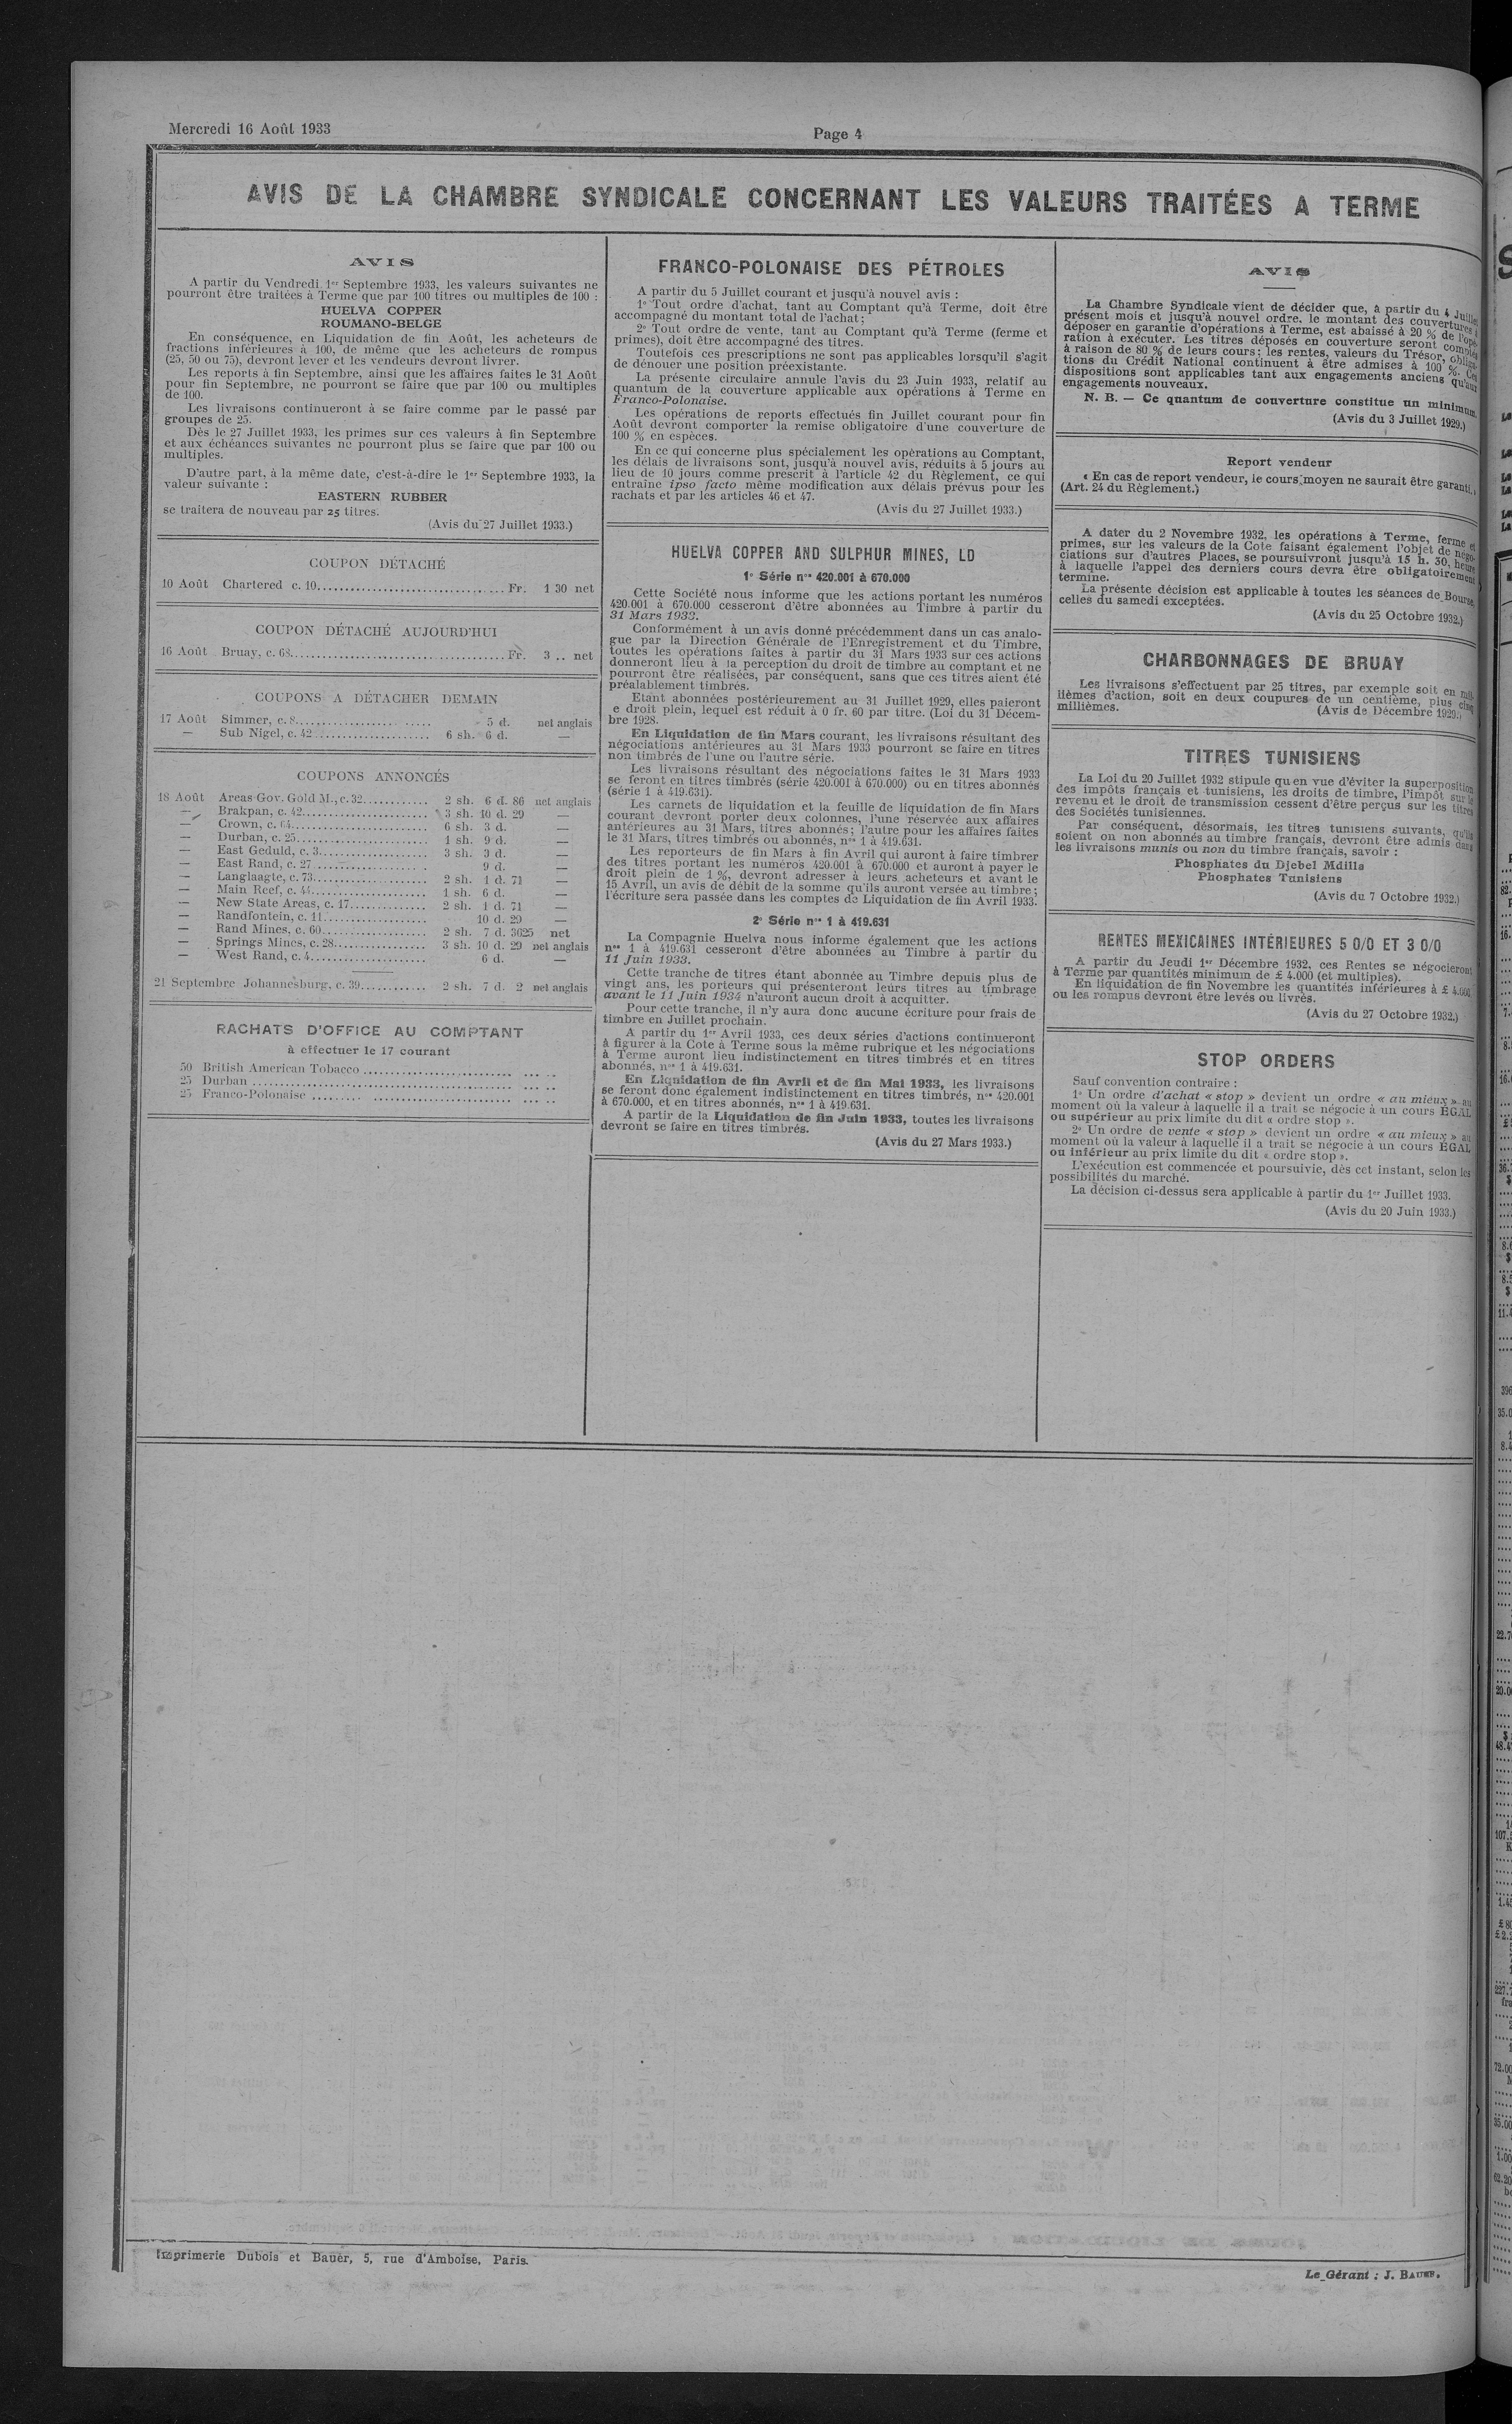 Mercredi 16 Août 1933
Page 4
AVIS DE LA CHAMBRE SYNDICALE CONCERNANT LES VALEURS TRAITÉES A TERME
AVIS
A partir du Vendredi 1er Septembre 1933, les valeurs suivantes ne
pourront être traitées à Terme que par 100 titres ou multiples de 100 :
HUELVA COPPER
ROUMANO-BELGE
En conséquence, en Liquidation de fin Août, les acheteurs de
fractions inférieures à 100, de même que les acheteurs de rompus
(25, 50 ou 75), devront lever et les vendeurs devront livrer.
Les reports à fin Septembre, ainsi que les affaires faites le 31 Août
pour fin Septembre, ne pourront se faire que par 100 ou multiples
de 100.
Les livraisons continueront à se faire comme par le passé par
groupes de 25.
Dès le 27 Juillet 1933, les primes sur ces valeurs à fin Septembre
et aux échéances suivantes ne pourront plus se faire que par 100 ou
multiples.
D'autre part, à la même date, c'est-à-dire le 1er Septembre 1933, la
valeur suivante :
EASTERN RUBBER
se traitera de nouveau par 25 titres.
(Avis du 27 Juillet 1933.)
COUPON DÉTACHÉ
10 Août Chartered c. 10.......... Fr. 1 30 net
COUPON DÉTACHÉ AUJOURD'HUI
16 Août Bruay, c. 68.......... Fr. 3 .. net
COUPONS A DÉTACHER DEMAIN
17 Août Simmer, c. 8.......... 5 d. net anglais
— Sub Nigel, c. 42.......... 6 sh. 6 d. —
COUPONS ANNONCÉS
18 Août Areas Gov. Gold M., c. 32.......... 2 sh. 6 d. 86 net anglais
— Brakpan, c. 42.......... 3 sh. 10 d. 29 —
— Crown, c. 64.......... 6 sh. 3 d. —
— Durban, c. 25.......... 1 sh. 9 d. —
— East Geduld, c. 3.......... 3 sh. 3 d. —
— East Rand, c. 27.......... 9 d. —
— Langlaagte, c. 73.......... 2 sh. 1 d. 71 —
— Main Reef, c. 44.......... 1 sh. 6 d. —
— New State Areas, c. 17.......... 2 sh. 1 d. 71 —
— Randfontein, c. 11.......... 10 d. 29 —
— Rand Mines, c. 60.......... 2 sh. 7 d. 3625 net
— Springs Mines, c. 28.......... 3 sh. 10 d. 29 net anglais
— West Rand, c. 4.......... 6 d. —
21 Septembre Johannesburg, c. 39.......... 2 sh. 7 d. 2 net anglais
RACHATS D'OFFICE AU COMPTANT
à effectuer le 17 courant
50 British American Tobacco ..........
25 Durban ..........
25 Franco-Polonaise ..........
FRANCO-POLONAISE DES PÉTROLES
A partir du 5 Juillet courant et jusqu'à nouvel avis :
1° Tout ordre d'achat, tant au Comptant qu'à Terme, doit être
accompagné du montant total de l'achat ;
2° Tout ordre de vente, tant au Comptant qu'à Terme (ferme et
primes), doit être accompagné des titres.
Toutefois ces prescriptions ne sont pas applicables lorsqu'il s'agit
de dénouer une position préexistante.
La présente circulaire annule l'avis du 23 Juin 1933, relatif au
quantum de la couverture applicable aux opérations à Terme en
Franco-Polonaise.
Les opérations de reports effectués fin Juillet courant pour fin
Août devront comporter la remise obligatoire d'une couverture de
100 % en espèces.
En ce qui concerne plus spécialement les opérations au Comptant,
les délais de livraisons sont, jusqu'à nouvel avis, réduits à 5 jours au
lieu de 10 jours comme prescrit à l'article 42 du Règlement, ce qui
entraîne ipso facto même modification aux délais prévus pour les
rachats et par les articles 46 et 47.
(Avis du 27 Juillet 1933.)
HUELVA COPPER AND SULPHUR MINES, LD
1e Série nos 420.001 à 670.000
Cette Société nous informe que les actions portant les numéros
420.001 à 670.000 cesseront d'être abonnées au Timbre à partir du
31 Mars 1932.
Conformément à un avis donné précédemment dans un cas analo-
gue par la Direction Générale de l'Enregistrement et du Timbre,
toutes les opérations faites à partir du 31 Mars 1933 sur ces actions
donneront lieu à la perception du droit de timbre au comptant et ne
pourront être réalisées, par conséquent, sans que ces titres aient été
préalablement timbrés.
Etant abonnées postérieurement au 31 Juillet 1929, elles paieront
e droit plein, lequel est réduit à 0 fr. 60 par titre. (Loi du 31 Décem-
bre 1928.
En Liquidation de fin Mars courant, les livraisons résultant des
négociations antérieures au 31 Mars 1933 pourront se faire en titres
non timbrés de l'une ou l'autre série.
Les livraisons résultant des négociations faites le 31 Mars 1933
se feront en titres timbrés (série 420.001 à 670.000) ou en titres abonnés
(série 1 à 419.631).
Les carnets de liquidation et la feuille de liquidation de fin Mars
courant devront porter deux colonnes, l'une réservée aux affaires
antérieures au 31 Mars, titres abonnés ; l'autre pour les affaires faites
le 31 Mars, titres timbrés ou abonnés, nos 1 à 419.631.
Les reporteurs de fin Mars à fin Avril qui auront à faire timbrer
des titres portant les numéros 420.001 à 670.000 et auront à payer le
droit plein de 1 %, devront adresser à leurs acheteurs et avant le
15 Avril, un avis de débit de la somme qu'ils auront versée au timbre ;
l'écriture sera passée dans les comptes de Liquidation de fin Avril 1933.
2e Série nos 1 à 419.631
La Compagnie Huelva nous informe également que les actions
nos 1 à 419.631 cesseront d'être abonnées au Timbre à partir du
11 Juin 1933.
Cette tranche de titres étant abonnée au Timbre depuis plus de
vingt ans, les porteurs qui présenteront leurs titres au timbrage
avant le 11 Juin 1934 n'auront aucun droit à acquitter.
Pour cette tranche, il n'y aura donc aucune écriture pour frais de
timbre en Juillet prochain.
A partir du 1er Avril 1933, ces deux séries d'actions continueront
à figurer à la Cote à Terme sous la même rubrique et les négociations
à Terme auront lieu indistinctement en titres timbrés et en titres
abonnés, nos 1 à 419.631.
En Liquidation de fin Avril et de fin Mai 1933, les livraisons
se feront donc également indistinctement en titres timbrés, nos 420.001
à 670.000, et en titres abonnés, nos 1 à 419.631.
A partir de la Liquidation de fin Juin 1933, toutes les livraisons
devront se faire en titres timbrés.
(Avis du 27 Mars 1933.)
AVIS
La Chambre Syndicale vient de décider que, à partir du 4 Juillet
présent mois et jusqu'à nouvel ordre, le montant des couvertures à
déposer en garantie d'opérations à Terme, est abaissé à 20 % de l'opé-
ration à exécuter. Les titres déposés en couverture seront comptés
à raison de 80 % de leurs cours ; les rentes, valeurs du Trésor, obliga-
tions du Crédit National continuent à être admises à 100 %. Ces
dispositions sont applicables tant aux engagements anciens qu'aux
engagements nouveaux.
N. B. — Ce quantum de couverture constitue un minimum.
(Avis du 3 Juillet 1929.)
Report vendeur
« En cas de report vendeur, le cours moyen ne saurait être garanti. »
(Art. 24 du Règlement.)
A dater du 2 Novembre 1932, les opérations à Terme, ferme et
primes, sur les valeurs de la Cote faisant également l'objet de négo-
ciations sur d'autres Places, se poursuivront jusqu'à 15 h. 30, heure
à laquelle l'appel des derniers cours devra être obligatoirement
terminé.
La présente décision est applicable à toutes les séances de Bourse,
celles du samedi exceptées.
(Avis du 25 Octobre 1932.)
CHARBONNAGES DE BRUAY
Les livraisons s'effectuent par 25 titres, par exemple soit en mil-
lièmes d'action, soit en deux coupures de un centième, plus cinq
millièmes.
(Avis de Décembre 1929.)
TITRES TUNISIENS
La Loi du 20 Juillet 1932 stipule qu'en vue d'éviter la superposition
des impôts français et tunisiens, les droits de timbre, l'impôt sur le
revenu et le droit de transmission cessent d'être perçus sur les titres
des Sociétés tunisiennes.
Par conséquent, désormais, les titres tunisiens suivants, qu'ils
soient on non abonnés au timbre français, devront être admis dans
les livraisons munis ou non du timbre français, savoir :
Phosphates du Djebel Mdilla
Phosphates Tunisiens
(Avis du 7 Octobre 1932.)
RENTES MEXICAINES INTÉRIEURES 5 0/0 ET 3 0/0
A partir du Jeudi 1er Décembre 1932, ces Rentes se négocieront
à Terme par quantités minimum de £ 4.000 (et multiples).
En liquidation de fin Novembre les quantités inférieures à £ 4.000
ou les rompus devront être levés ou livrés.
(Avis du 27 Octobre 1932.)
STOP ORDERS
Sauf convention contraire :
1° Un ordre d'achat « stop » devient un ordre « au mieux » au
moment où la valeur à laquelle il a trait se négocie à un cours ÉGAL
ou supérieur au prix limite du dit « ordre stop ».
2° Un ordre de vente « stop » devient un ordre « au mieux » au
moment où la valeur à laquelle il a trait se négocie à un cours ÉGAL
ou inférieur au prix limite du dit « ordre stop ».
L'exécution est commencée et poursuivie, dès cet instant, selon les
possibilités du marché.
La décision ci-dessus sera applicable à partir du 1er Juillet 1933.
(Avis du 20 Juin 1933.)
Imprimerie Dubois et Bauer, 5, rue d'Amboise, Paris.
Le Gérant : J. BAUER.